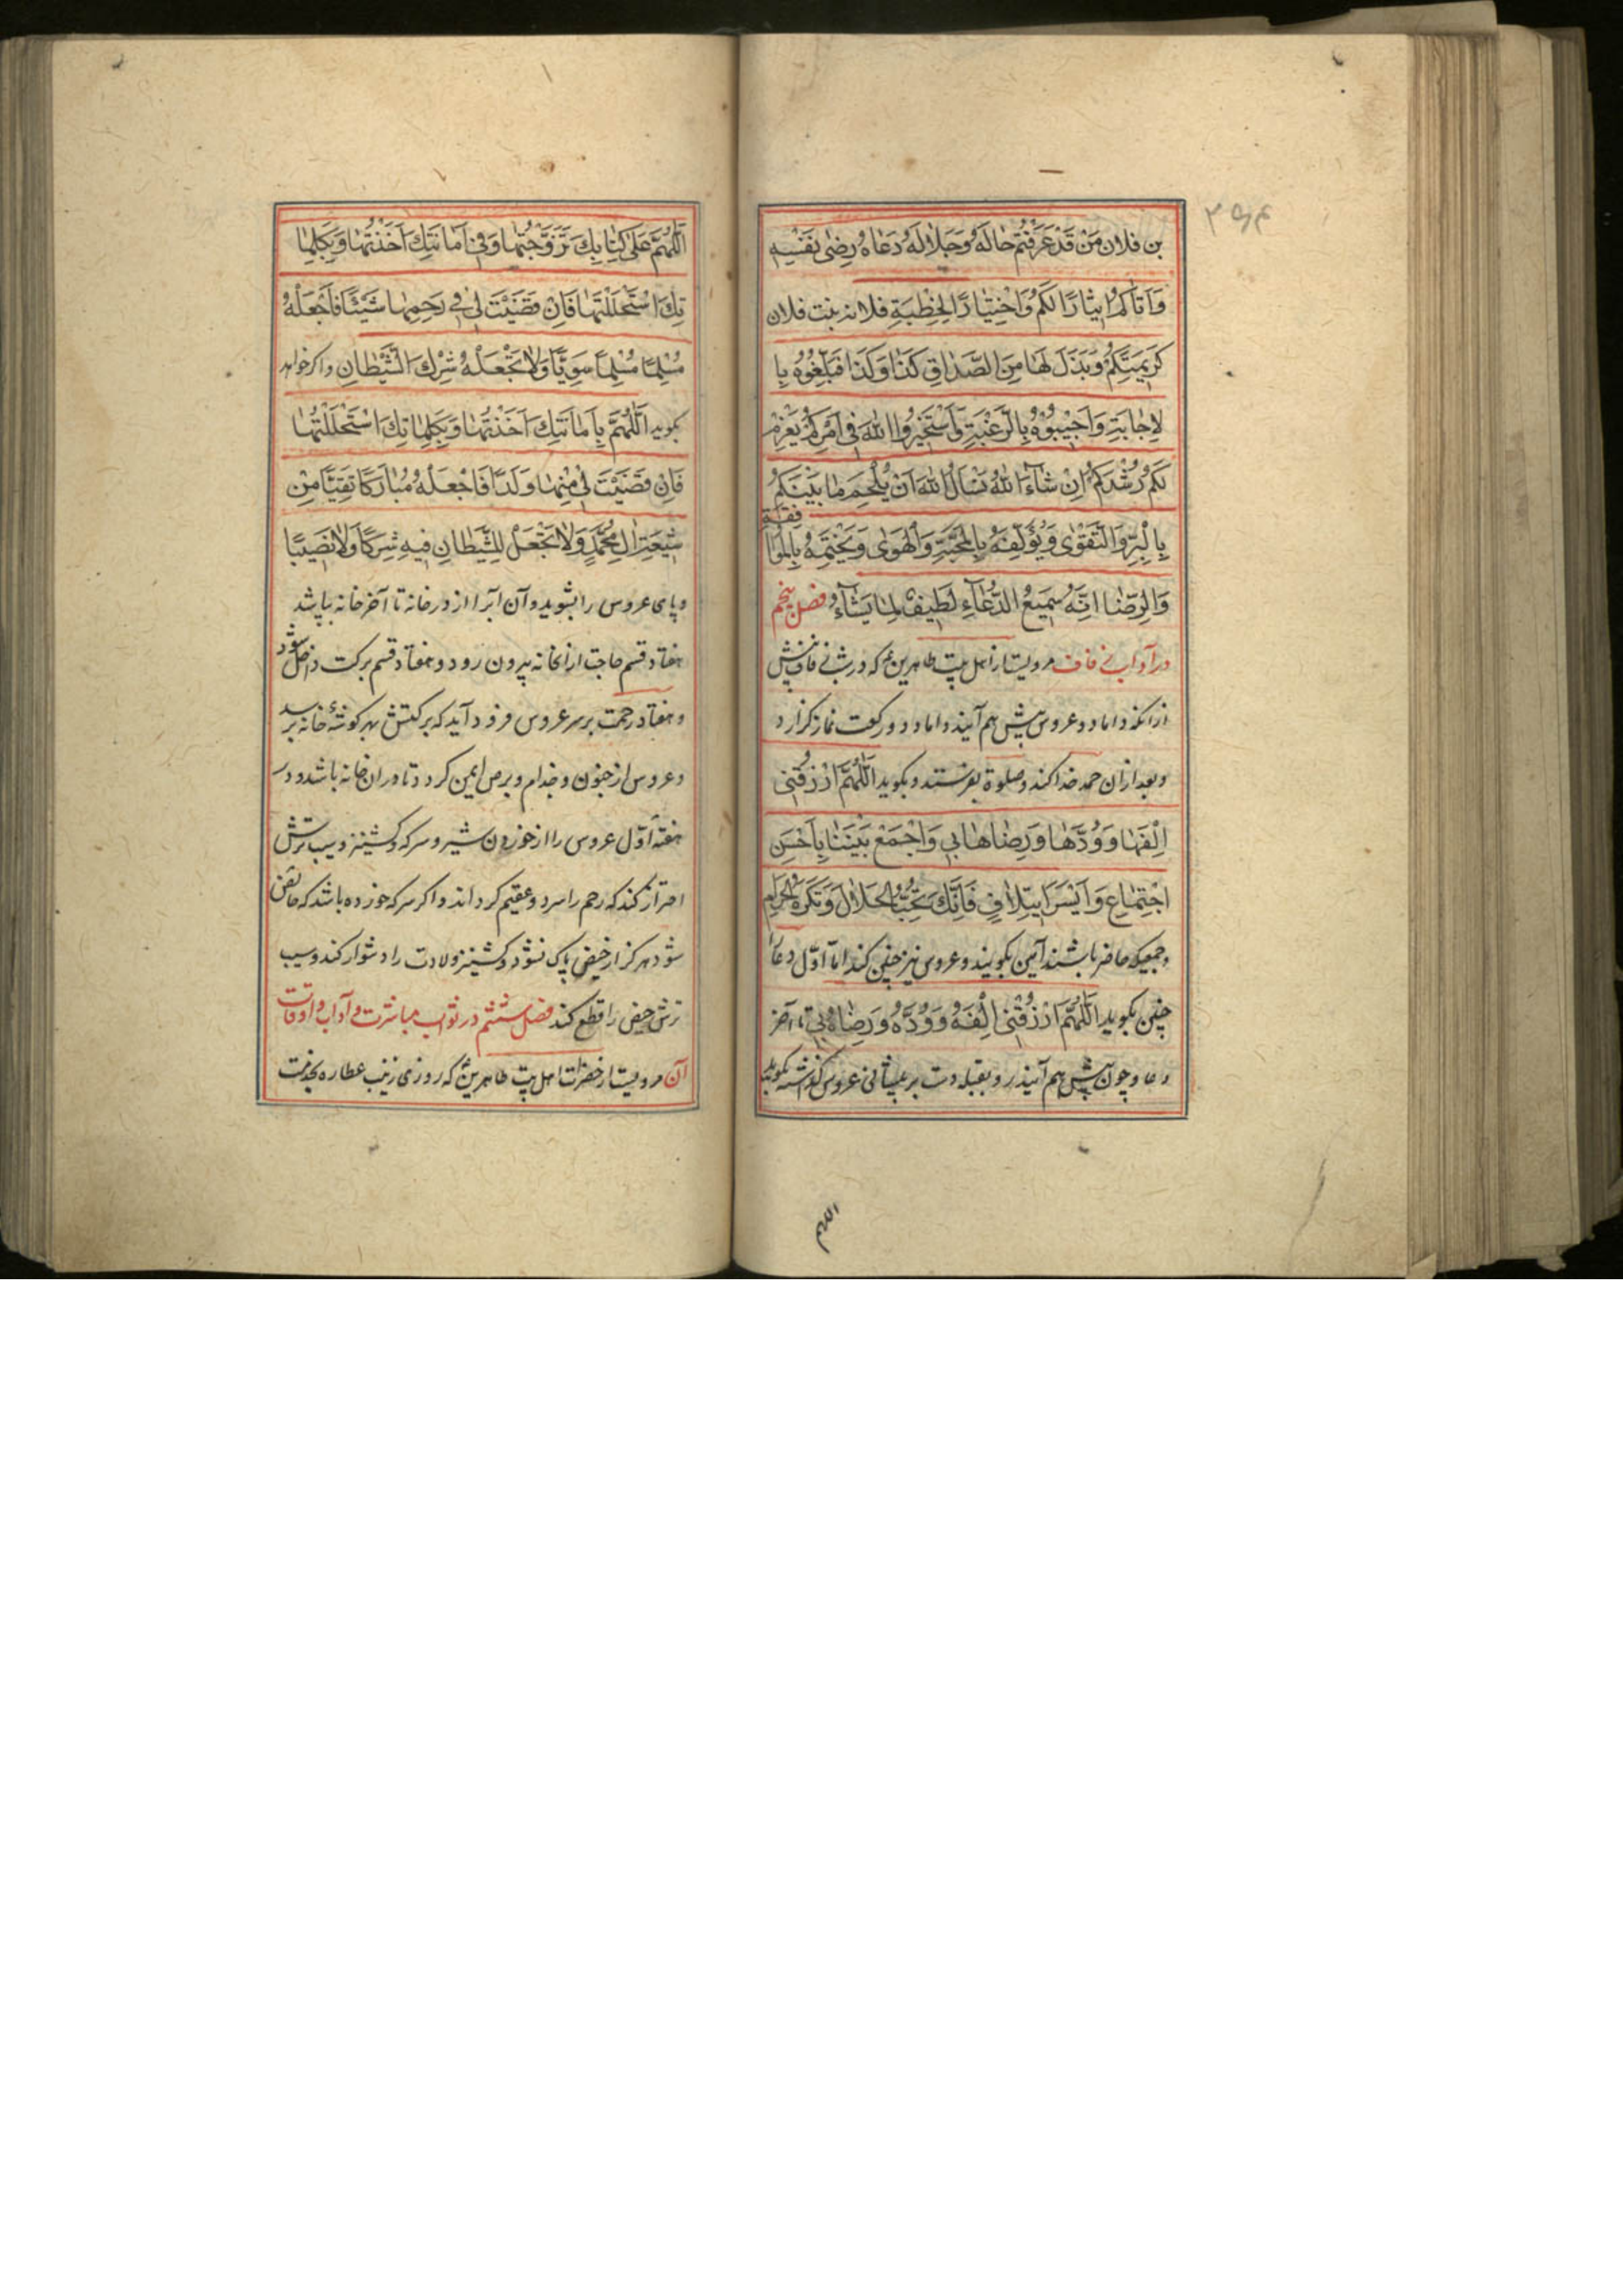 بن فلان مَنْ قَدْ عَرَفْتُمْ حٰالَهُ وَجَلاٰلَهُ دَعٰاهُ رِضٰى نَفْسِهِ
وَاَتٰاكُمْ اِيثٰارًا لَكُمْ وَاخْتِيٰارًا لِخِطْبَةِ فلانه بنت فلان
كَرِيمَتِكُمْ وَبَذَلَ لَهٰا مِنَ الصَّدٰاقِ كَذٰا وَكَذٰا فَبَلِّغُوهُ بِا
لاِجٰابَةِ وَاَجِيبُوهُ بِالرَّغْبَةِ وَاسْتَخِيرُوا اللّٰهَ فِى اَمْرِكُمْ يَعْزِمْ
لَكُمْ رُشْدَكُمْ اِنْ شٰآءَ اللّٰهُ نَسْأَلُ اللّٰهَ اَنْ يُلْحِمَ مٰا بَيْنَكُمْ
بِالْبِرِّ وَالتَّقْوٰى وَيُؤَلِّفَهُ بِالْمَحَبَّةِ وَالْهَوٰى وَيَخْتِمَهُ بِالْمُوٰافَقَةِ
وَالرِّضٰا اِنَّهُ سَمِيعُ الدُّعٰآءِ لَطِيفٌ لِمٰا يَشٰآءُ فصل پنجم
در آداب زفاف مرویست از اهل بیت طاهرین ع که در شب زفاف پیش
از انکه داماد و عروس پیش هم آیند داماد دو رکعت نماز گزارد
و بعد از ان حمد خدا کند و صلوة بفرستد و بگوید اَللّٰهُمَّ ارْزُقْنِى
اِلْفَهٰا وَوُدَّهٰا وَرِضٰاهٰا بِي وَاجْمَعْ بَيْنَنٰا بِاَحْسَنِ
اجْتِمٰاعٍ وَاَيْسَرِ ايتِلاٰفٍ فَاِنَّكَ تُحِبُّ الْحَلاٰلَ وَتَكْرَهُ الْحَرٰامَ
و جمعیکه حاضر باشند آمین بگویند و عروس نیز چنین کند اما اوّل دعا
چنین بگوید اَللّٰهُمَّ ارْزُقْنِى اِلْفَهُ وَوُدَّهُ وَرِضٰاهُ بِي تا آخر
دعا و چون پیش هم آیند رو بقبله دست بر پیشانی عروس گذاشته بگوید
اللهم
اَللّٰهُمَّ عَلىٰ كِتٰابِكَ تَزَوَّجْتُهٰا وَفِى اَمٰانَتِكَ اَخَذْتُهٰا وَبِكَلِمٰا
تِكَ اسْتَحْلَلْتُهٰا فَاِنْ قَضَيْتَ لِى فِى رَحِمِهٰا شَيْئًا فَاجْعَلْهُ
مُسْلِمًا مُسْلِمًا سَوِيًّا وَلاٰ تَجْعَلْهُ شِرْكَ الشَّيْطٰانِ و اگر خواهد
بگوید اَللّٰهُمَّ بِاَمٰانَتِكَ اَخَذْتُهٰا وَبِكَلِمٰاتِكَ اسْتَحْلَلْتُهٰا
فَاِنْ قَضَيْتَ لِى مِنْهٰا وَلَدًا فَاجْعَلْهُ مُبٰارَكًا تَقِيًّا مِنْ
شِيعَةِ اٰلِ مُحَمَّدٍ وَلاٰ تَجْعَلْ لِلشَّيْطٰانِ فِيهِ شِرْكًا وَلاٰ نَصِيبًا
و پای عروس را بشوید و آن آبرا از در خانه تا آخر خانه بپاشد
هفتاد قسم حاجت از انخانه بیرون رود و هفتاد قسم برکت داخل شود
و هفتاد رحمت بر سر عروس فرود آید که برکتش بهر گوشهٔ خانه برسد
و عروس از جنون و جذام و برص ایمن گردد تا در ان خانه باشد و در
هفتهٔ اوّل عروس را از خوردن شیر و سرکه و گشنیز و سیب ترش
احتراز کند که رحم را سرد و عقیم گرداند و اگر سرکه خورده باشد که حائض
شود هرگز از حیض پاک نشود و گشنیز ولادت را دشوار کند و سیب
ترش حیض را قطع کند فصل ششم در ثواب مباشرت و آداب و اوقات
آن مرویست از حضرات اهل بیت طاهرین ع که روزی زینب عطاره بخدمت